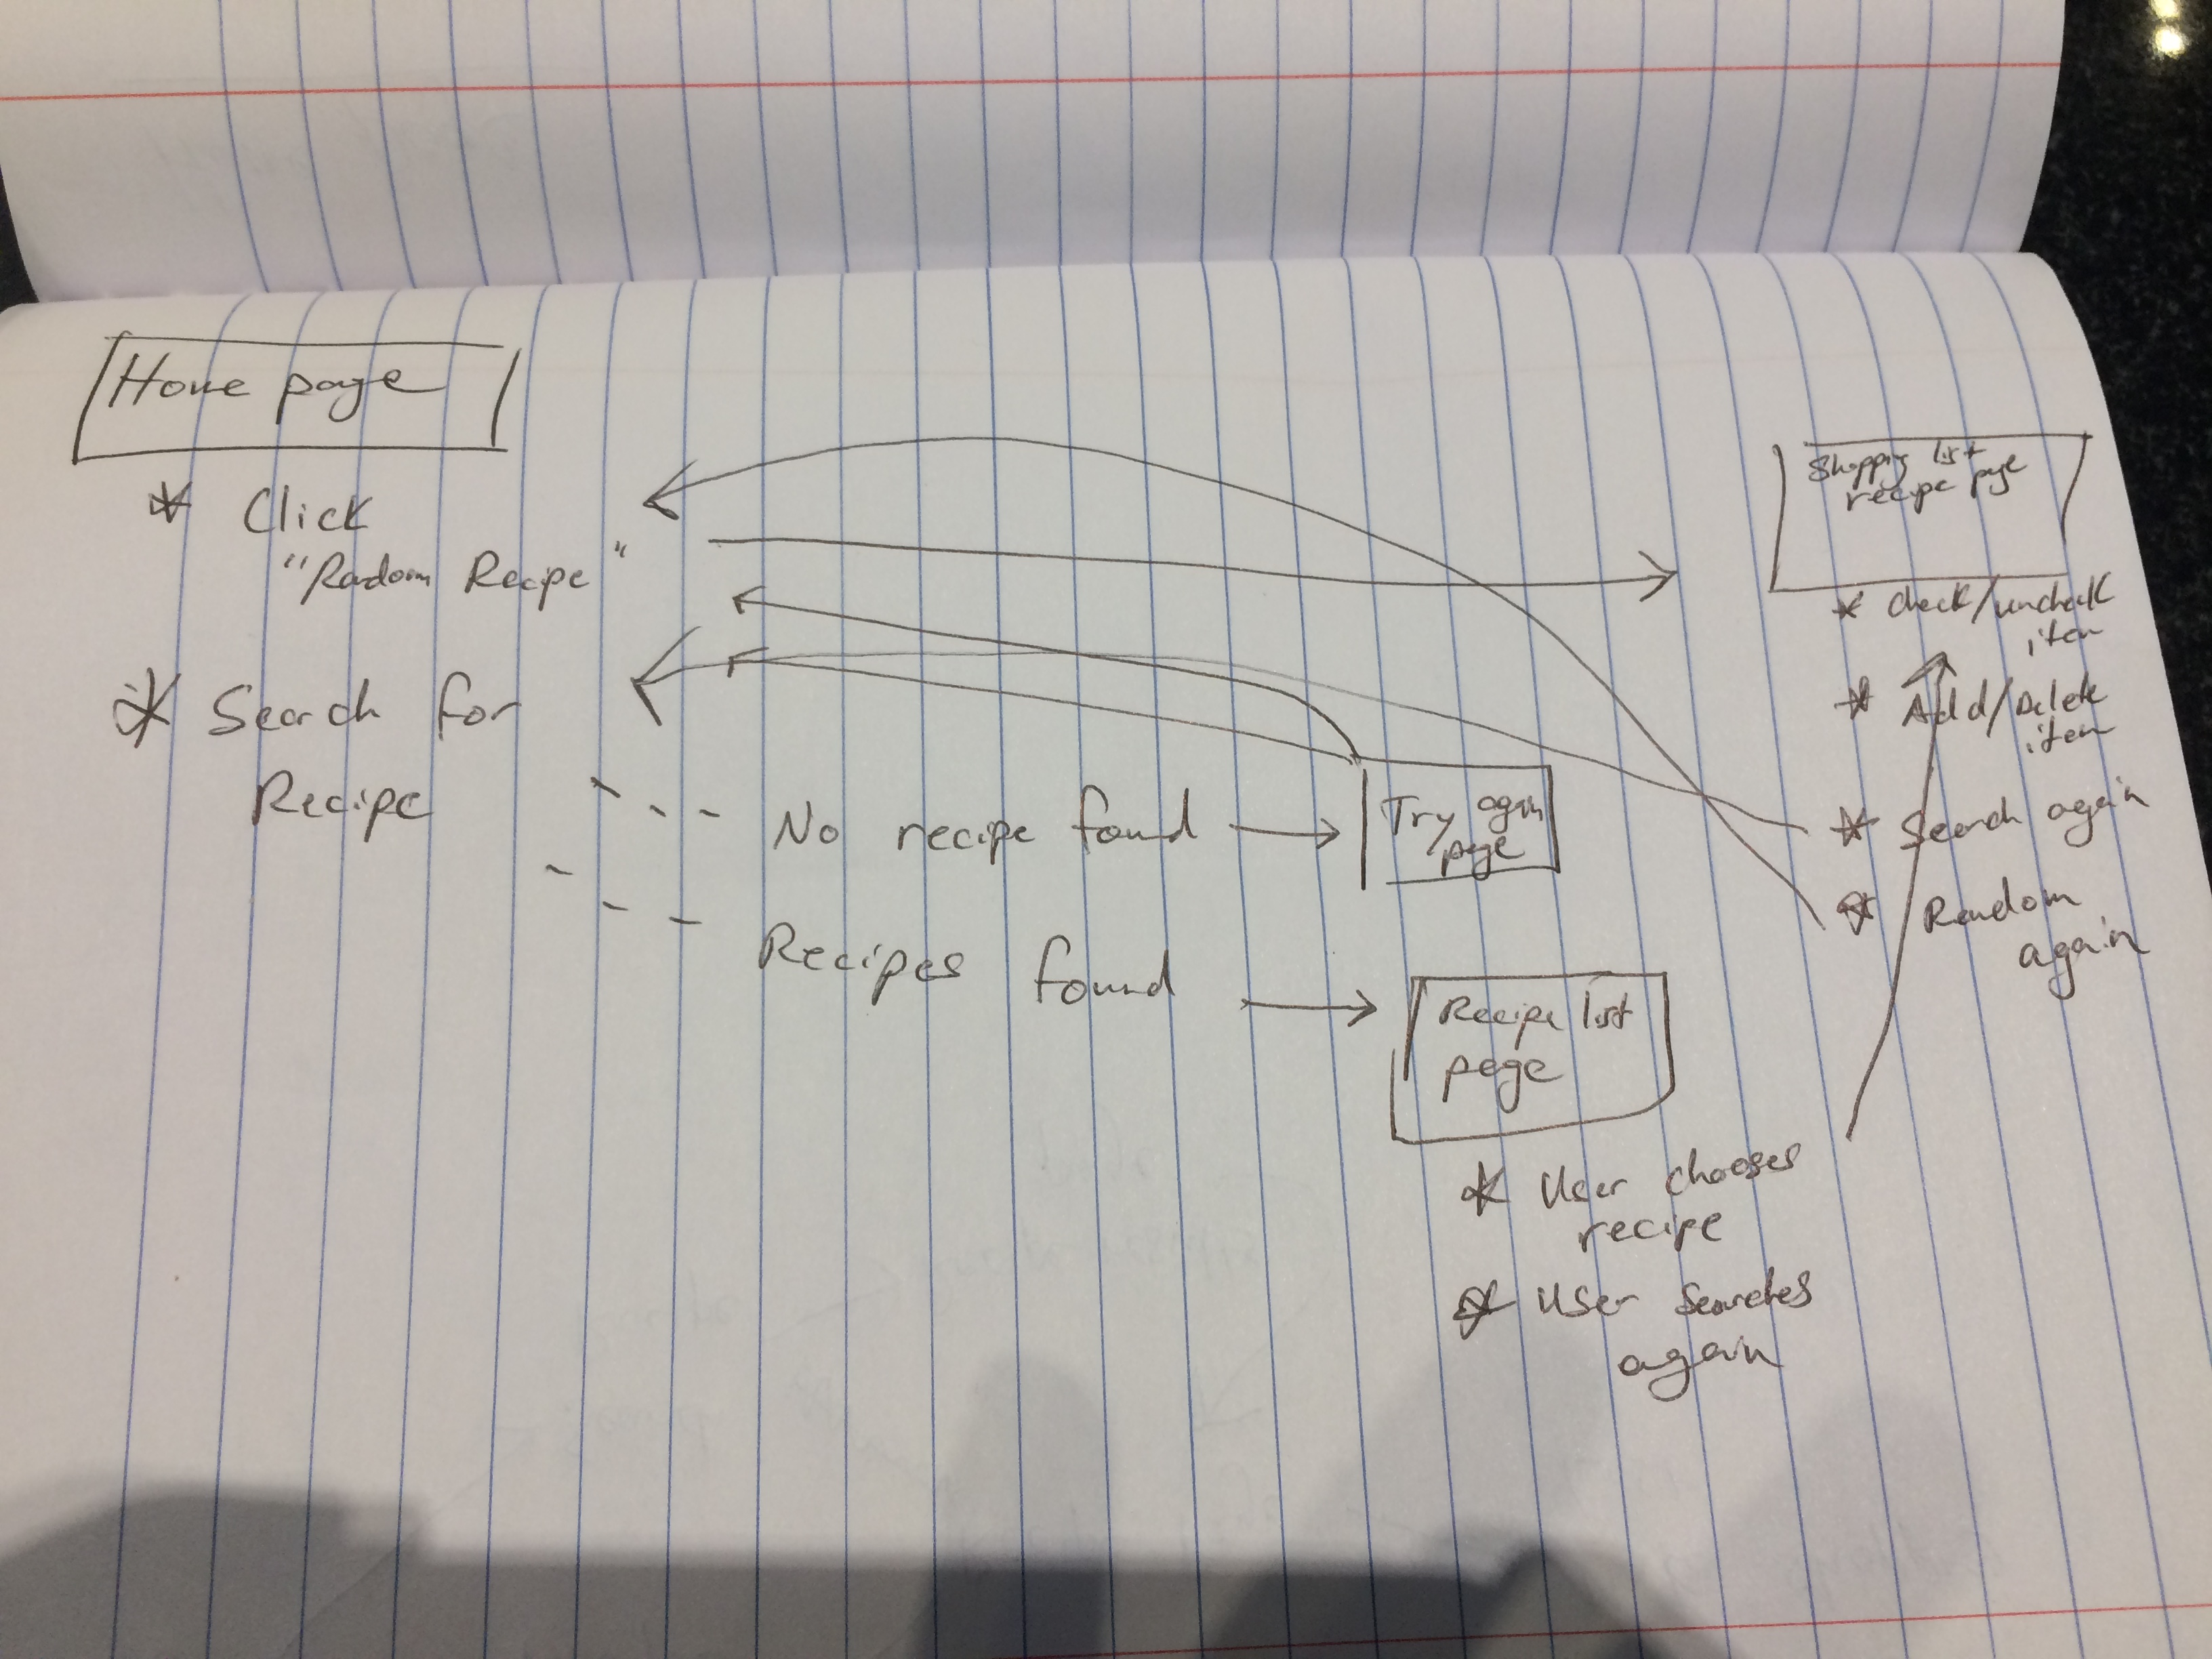 Home page
* Click
"Radom Recipe"
* Search for
Recipe
No recipe found
Recipes found
Try again
page
Recipe list
page
* User chooses
recipe
* User searches
again
Shopping list
recipe page
* check/uncheck
item
* Add/Delete
item
* Search again
* Random
again